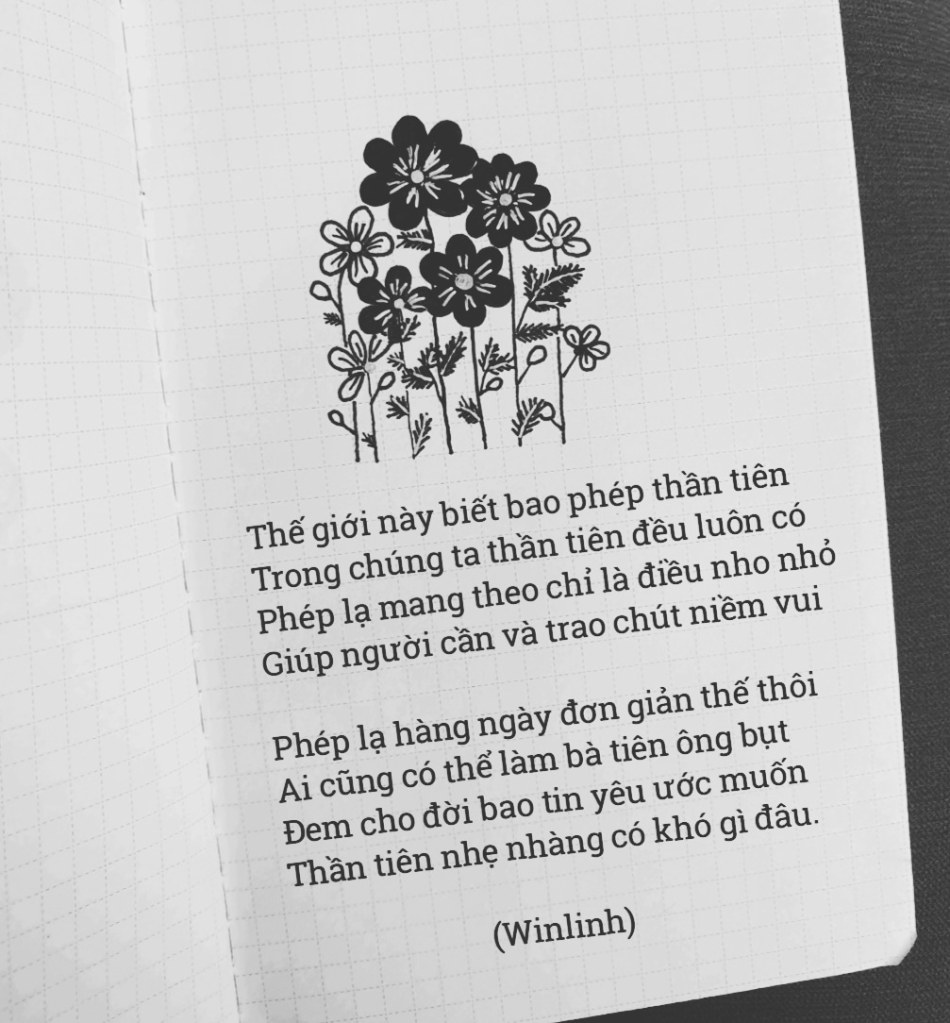 Thế giới này biết bao phép thần tiên
Trong chúng ta thần tiên đều luôn có
Phép lạ mang theo chỉ là điều nho nhỏ
Giúp người cần và trao chút niềm vui
Phép lạ hàng ngày đơn giản thế thôi
Ai cũng có thể làm bà tiên ông bụt
Đem cho đời bao tin yêu ước muốn
Thần tiên nhẹ nhàng có khó gì đâu.
(Winlinh)